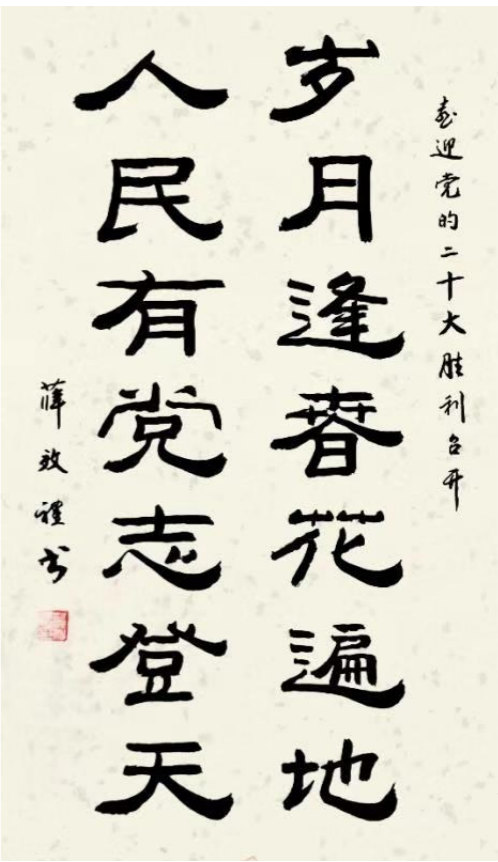 喜迎党的二十大胜利召开
岁月逢春花遍地
人民有党志登天
薛效禮书